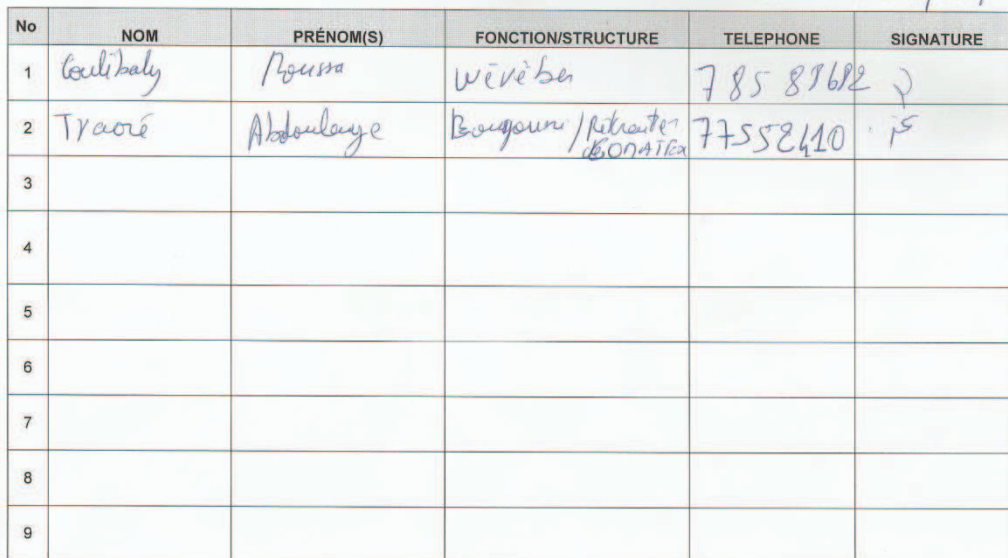 No NOM PRÉNOM(S) FONCTION/STRUCTURE TELEPHONE SIGNATURE
1 Coulibaly Moussa Wèrèbes 785 89682
2 Traoré Abdoulaye Bougouni / Rétraiter 77552410
de COMATEX
3
4
5
6
7
8
9